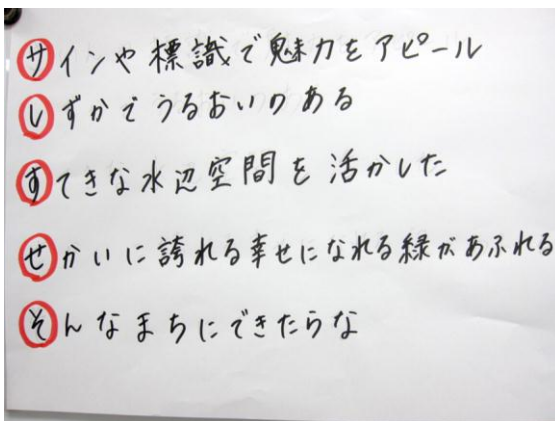 サインや標識で魅力をアピール
しずかでうるおいのある
すてきな水辺空間を活かした
せかいに誇れる幸せになれる緑があふれる
そんなまちにできたらな